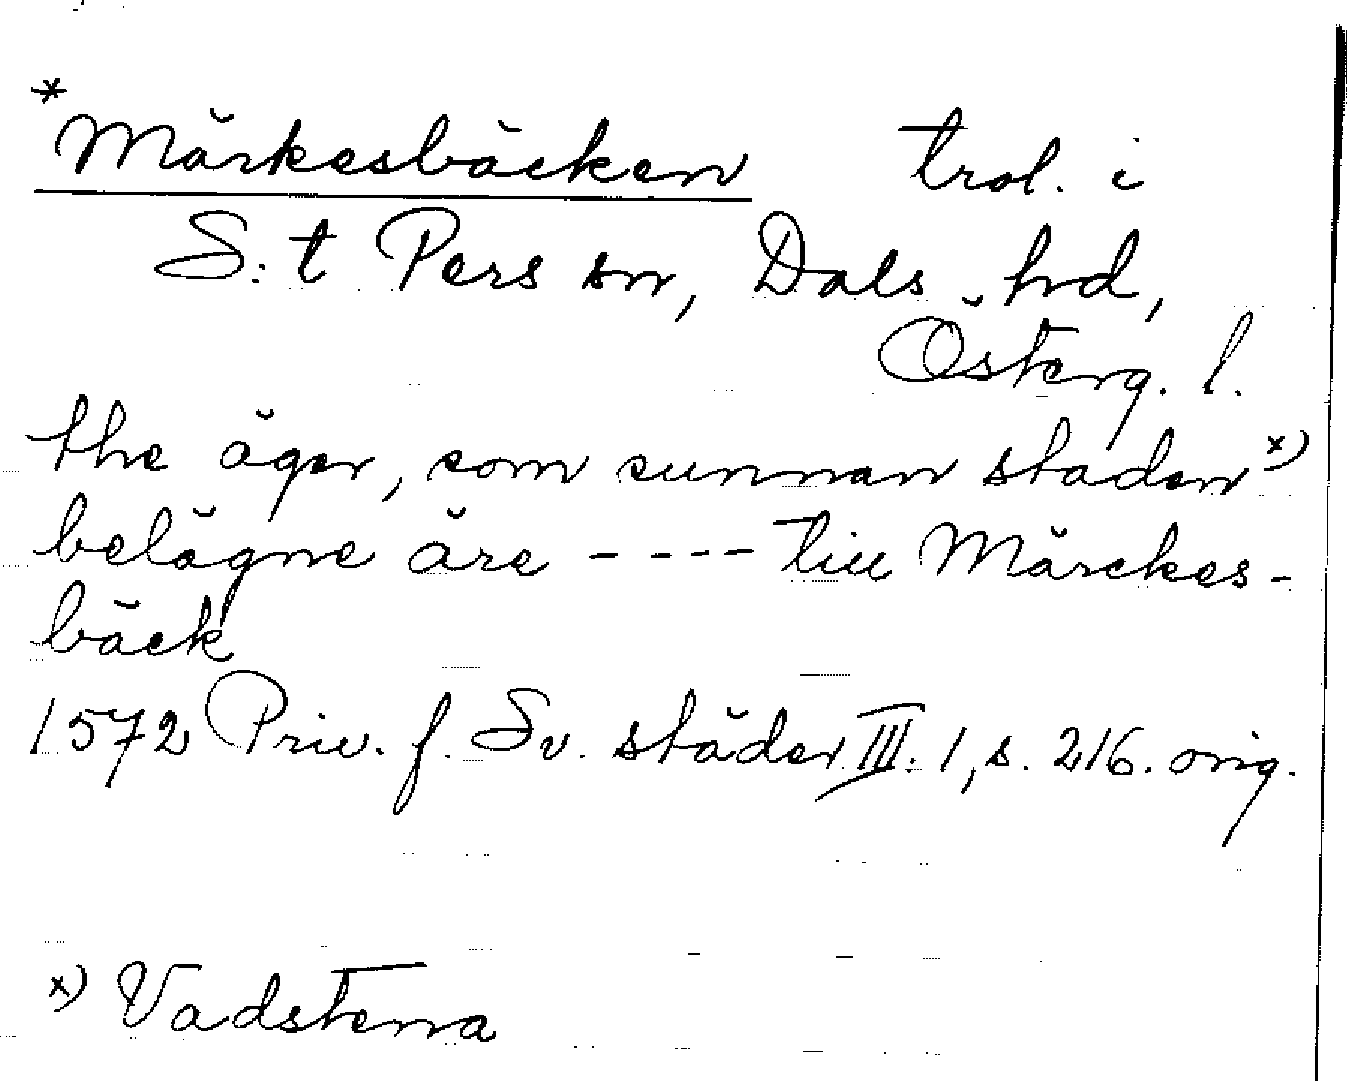 *Märkesbäcken trol. i
S:t Pers sn, Dals hd,
Österg. l.
the äger, som sunnan staden x)
belägne äre - - - - till Märckes-
bäck
1572 Priv. f. Sv. städer III:1, s. 216. orig.
x) Vadstena